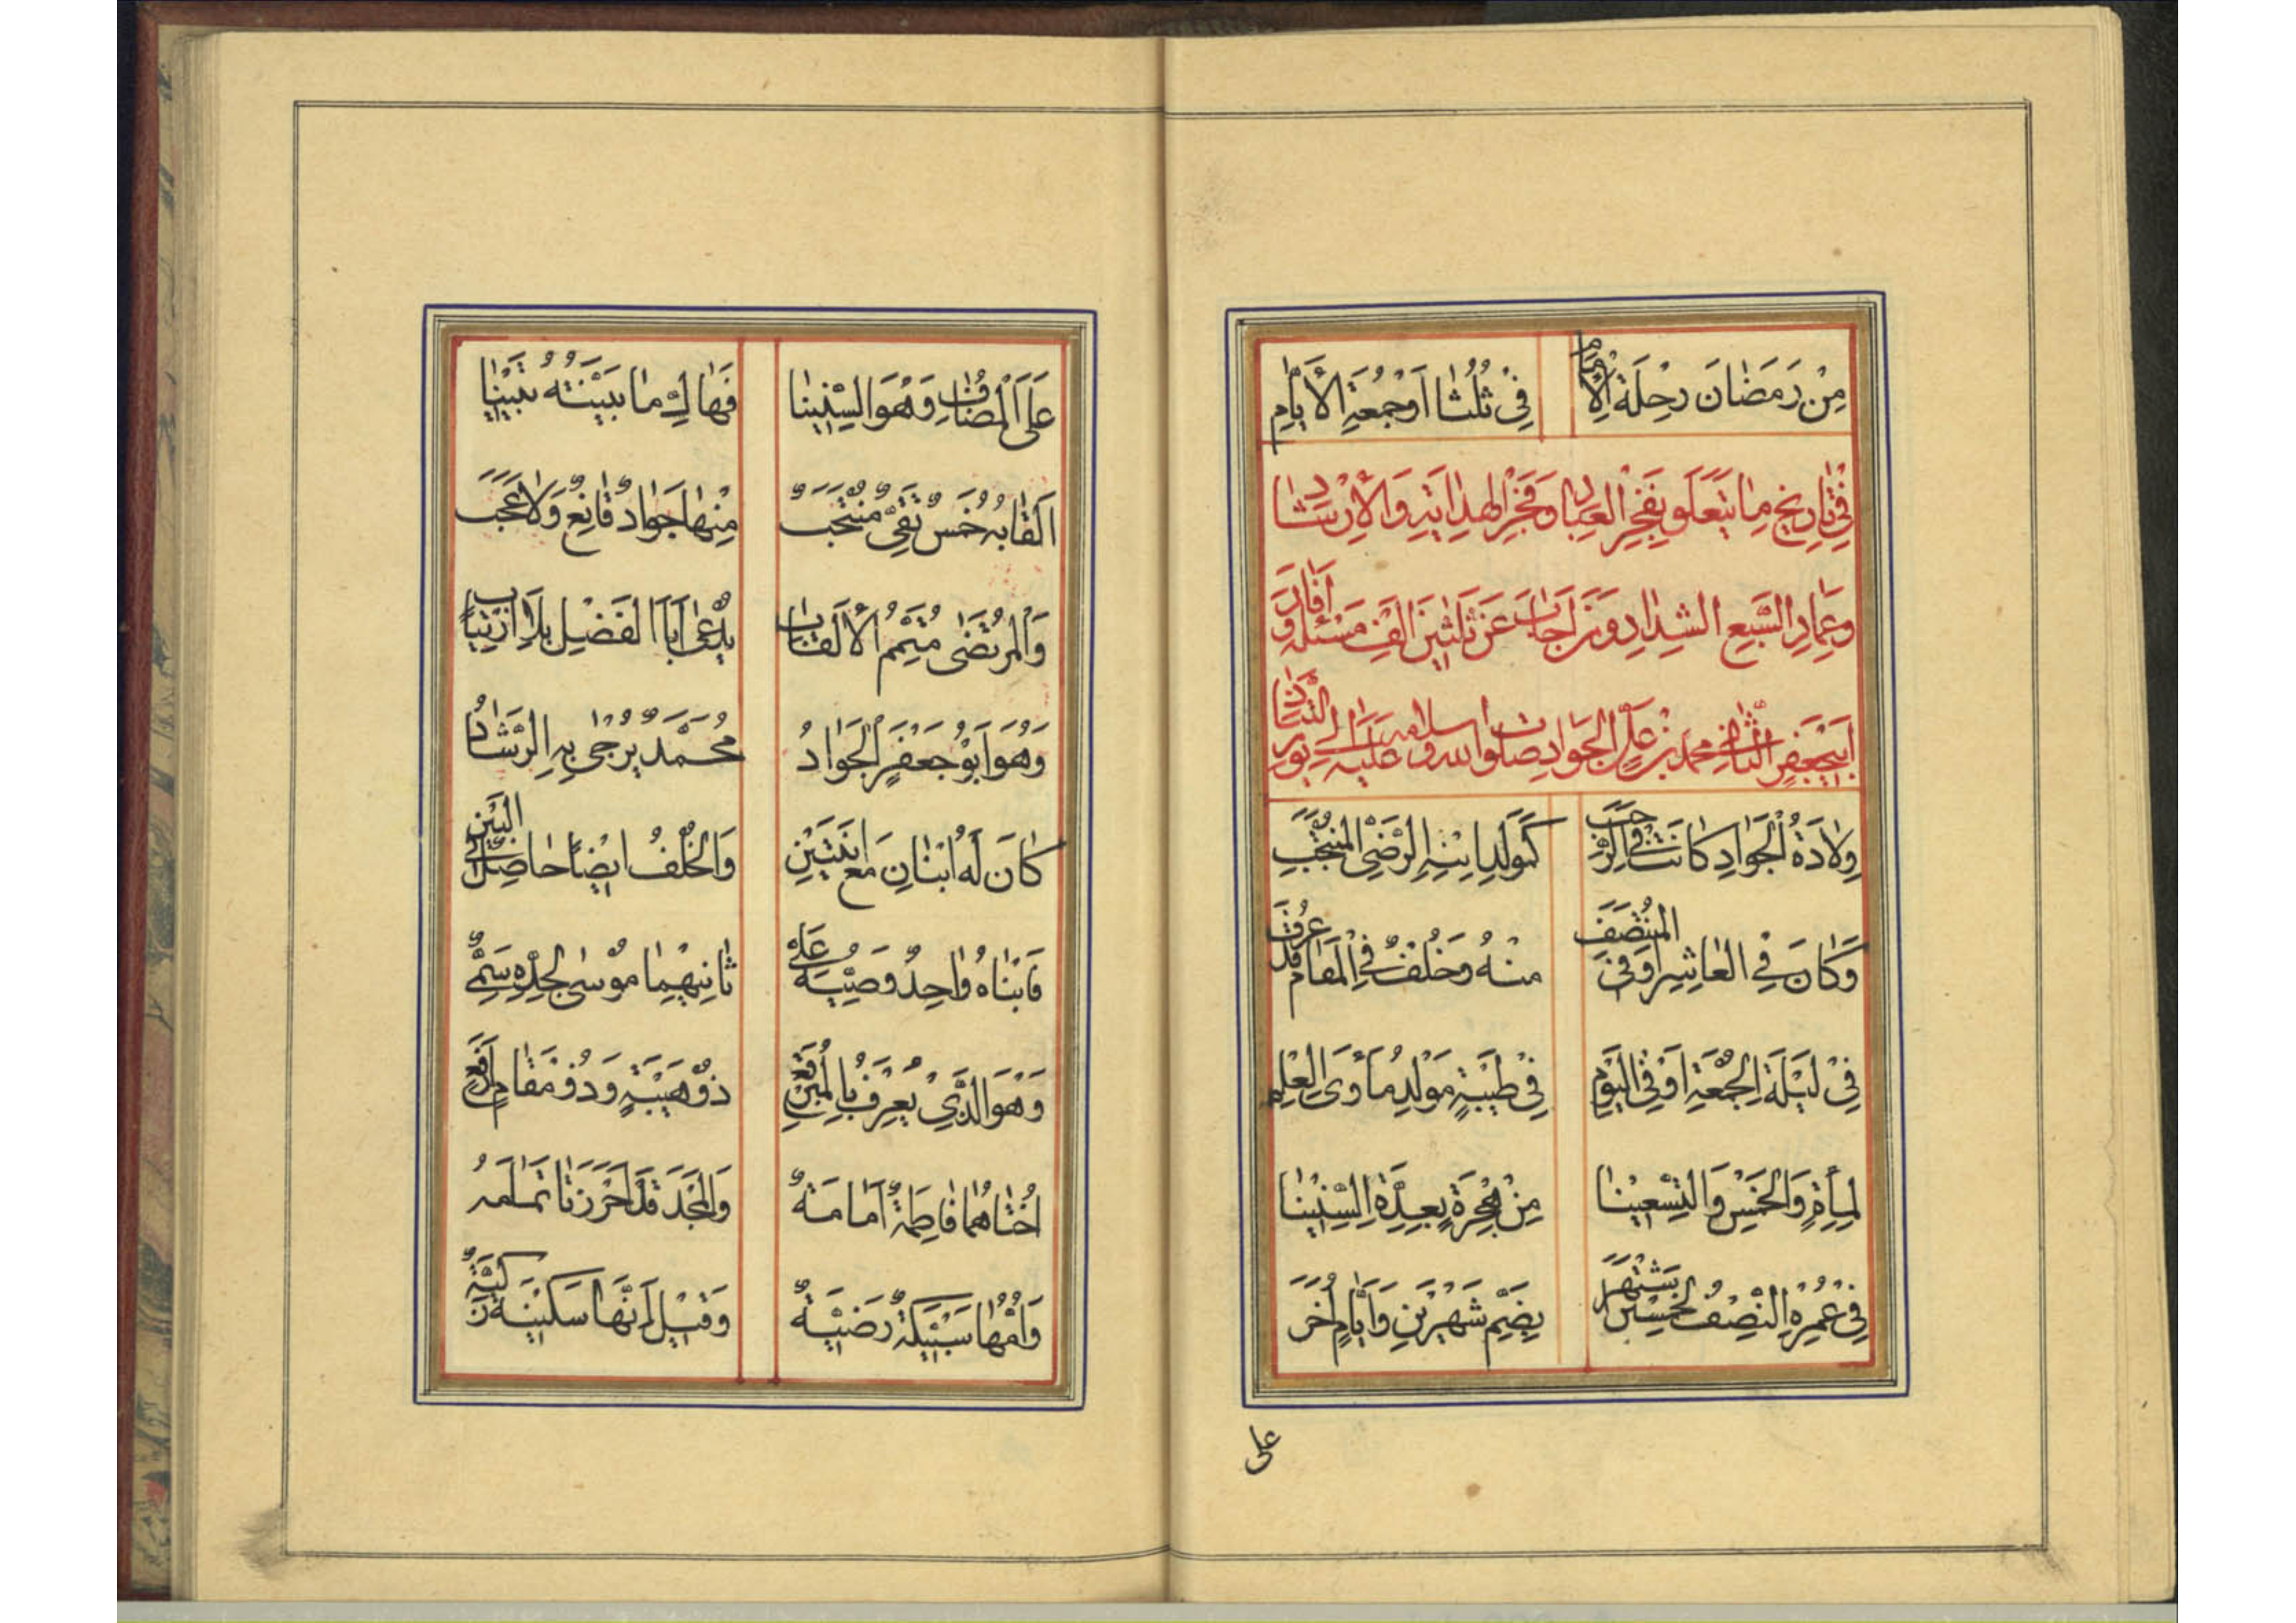 مِنْ رَمَضٰانَ رِحْلَةُ الْاِمٰامِ فِىْ ثُلُثٰا اَوْجُمْعَةِ الْاَيّٰامِ
فِىْ تٰارِيخِ مٰا يَتَعَلَّقُ بِفَخْرِ الْعِبٰادِ وَفَخْرِ الْهِدٰايَةِ وَالْاِرْشٰادِ
وَعِمٰادِ السَّبْعِ الشِّدٰادِ وَمَنْ اَجٰابَ عَنْ ثَلٰثِينَ اَلْفِ مَسْئَلَةٍ وَ اَفٰادَ
اَبِيجَعْفَرٍ الثّٰانِى مُحَمَّدِ بْنِ عَلِىٍّ الْجَوٰادِ صَلَوٰات الله وسلامه عَلَيْهِ اِلىٰ يَوْمِ التَّنٰادِ
وِلٰادَةُ الْجَوٰادِ كٰانَتْ فِى الرَّجَبْ كَمَوْلِدِ ابْنِهِ الرَّضِىِّ الْمُنْتَجَبْ
وَكٰانَ فِى الْعٰاشِرِ اَوْ فِى الْمُنْتَصَفْ مِنْهُ وَخُلْفٌ فِى الْمَقٰامِ قَدْ عُرِفَ
فِىْ لَيْلَةِ الْجُمْعَةِ اَوْ فِى الْيَوْمِ فِىْ طَيْبَةٍ مَوْلِدُ مَأْوَى الْعِلْمِ
لِمِأَةٍ وَالْخَمْسِ وَالتِّسْعِينٰا مِنْ هِجْرَةٍ بِعِدَّةِ السِّنِينٰا
فِىْ عُمْرِهِ النِّصْفُ لِخَمْسِينَ يَشْتَهَرْ بِضَمِّ شَهْرَيْنِ وَاَيّٰامٍ اُخَرَ
على
عَلَى الْمُضٰافِ وَهُوَ السِّنِينٰا فَهٰاكَ مٰا بَيَّنْتُهُ تَبْيِينٰا
اَلْقٰابُهُ خَمْسٌ تَقِىٌّ مُنْتَجَبٌ مِنْهٰا جَوٰادٌ قٰانِعٌ وَلاٰ عَجَبَ
وَالْمُرْتَضٰى مُتَمِّمُ الْاَلْقٰابِ يُدْعٰى اَبَا الْفَضْلِ بِلاَ ارْتِيٰابِ
وَهُوَ اَبُوْجَعْفَرٍ الْجَوٰادُ مُحَمَّدٌ يُرْجىٰ بِهِ الرَّشٰادُ
كٰانَ لَهُ ابْنٰانِ مَعَ ابْنَتَيْنِ وَالْخُلْفُ اَيْضًا حٰاصِلٌ فِى الْبَيْنِ
فَابْنٰاهُ وٰاحِدٌ وَصِيُّهُ عَلِىٌّ ثٰانِيهِمٰا مُوْسىٰ لِجَدِّهِ سَمِىٌّ
وَهُوَ الَّذِىْ يُعْرَفُ بِالْمُبَرْقَعِ ذُوْ هَيْبَةٍ وَذُوْ مَقٰامٍ اَرْفَعِ
اُخْتٰاهُمٰا فٰاطِمَةٌ اَمٰامَةٌ وَالْمَجْدَ قَدْ اَحْرَزَتٰا تَمٰامَهُ
وَاُمُّهٰا سَبِيكَةٌ رَضِيَّةٌ وَقِيلَ اَنَّهٰا سَكِينَةٌ زَكِيَّةٌ